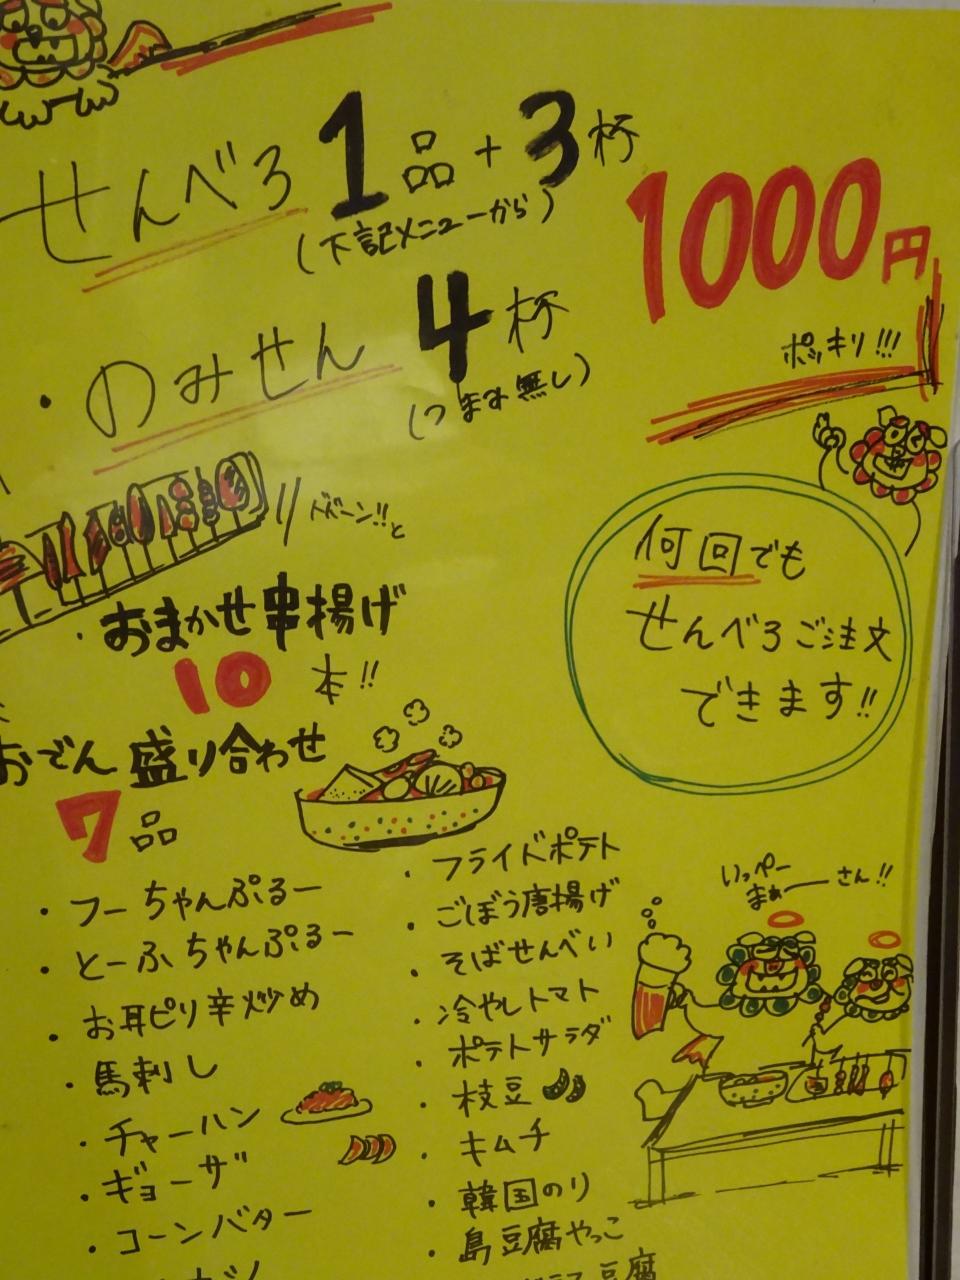 せんべろ 1品+3杯
(下記メニューから)
1000円
ポッキリ!!!
・のみせん 4杯
(つまみ無し)
ドドーン!!と
・おまかせ串揚げ
10本!!
おでん盛り合わせ
7品
何回でも
せんべろご注文
できます!!
・フーちゃんぷるー
・とーふちゃんぷるー
・お耳ピリ辛炒め
・馬刺し
・チャーハン
・ギョーザ
・コーンバター
・フライドポテト
・ごぼう唐揚げ
・そばせんべい
・冷やしトマト
・ポテトサラダ
・枝豆
・キムチ
・韓国のり
・島豆腐やっこ
豆腐
いっぺー
まぁーさん!!